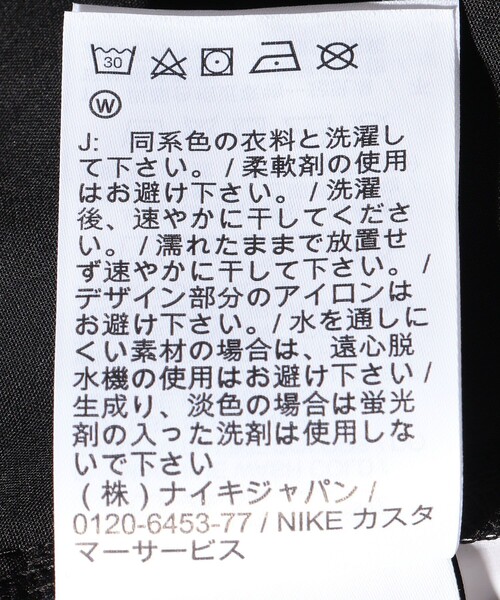 30
W
J: 同系色の衣料と洗濯し
て下さい。/ 柔軟剤の使用
はお避け下さい。/ 洗濯
後、速やかに干してくださ
い。/ 濡れたままで放置せ
ず速やかに干して下さい。/
デザイン部分のアイロンは
お避け下さい。/ 水を通しに
くい素材の場合は、遠心脱
水機の使用はお避け下さい /
生成り、淡色の場合は蛍光
剤の入った洗剤は使用しな
いで下さい
( 株 ) ナイキジャパン /
0120-6453-77 / NIKE カスタ
マーサービス